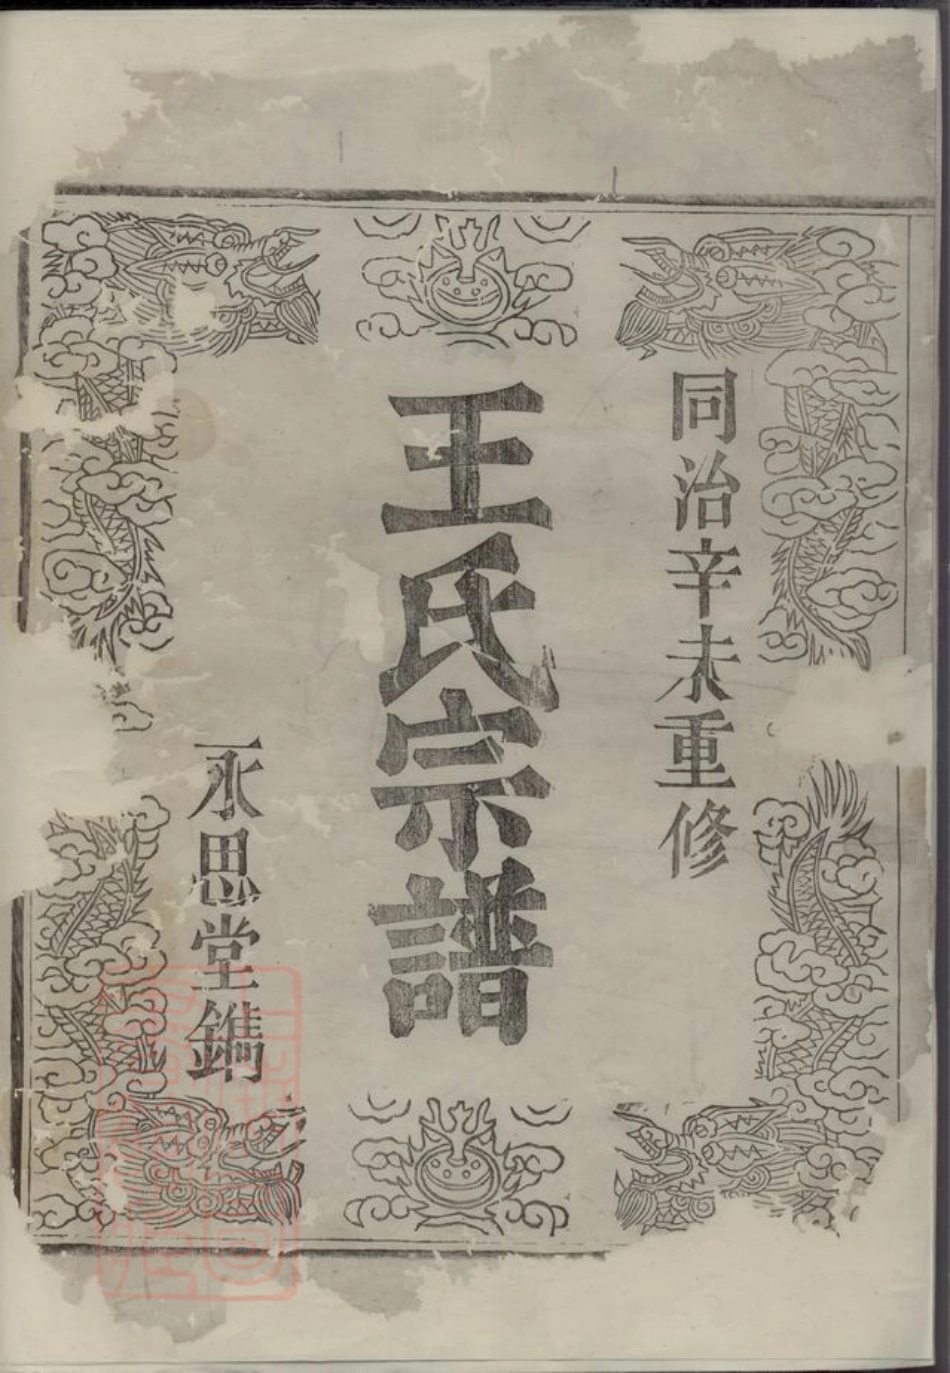 同治辛未重修
王氏宗譜
永思堂鐫